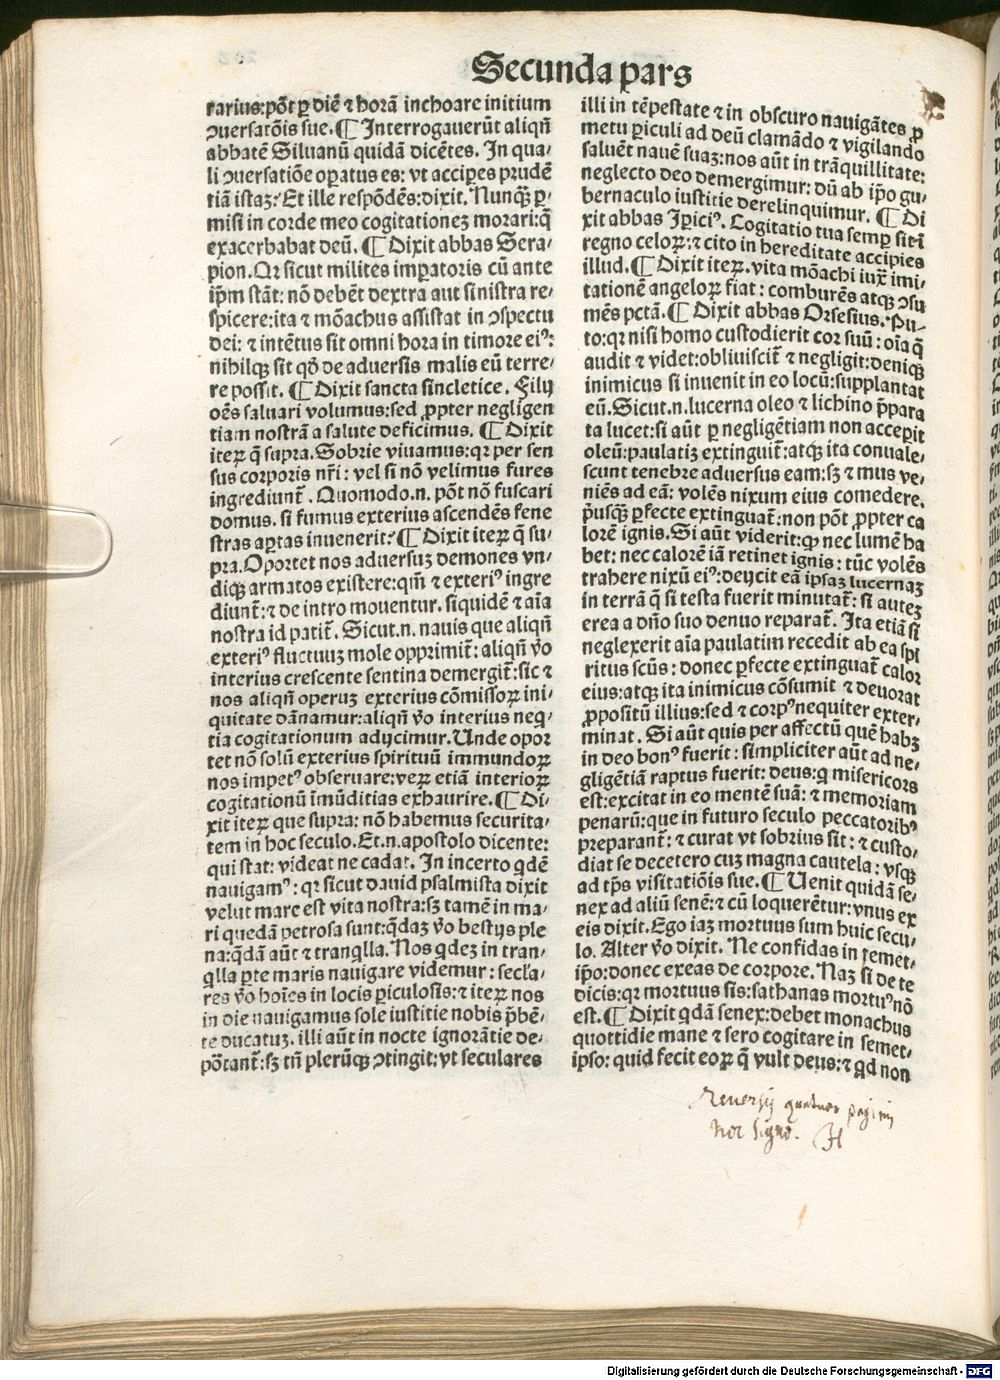 Secunda pars
rarius:põt ꝑ diẽ ⁊ horã inchoare initium
ↄuersatõis sue.¶ Interrogauerũt aliqñ
abbatẽ Siluanũ quidã dicẽtes. In qua-
li ↄuersatiõe oꝑatus es: vt acciꝑes prudẽ
tiã istaꝫ? Et ille respõdẽs:dixit. Nunqꝫ ꝑ-
misi in corde meo cogitationeꝫ morari:q̃
exacerbabat deũ. ¶ Dixit abbas Sera-
pion. Qꝛ sicut milites imꝑatoris cũ ante
ip̃m stãt: nõ debẽt dextra aut sinistra re-
spicere:ita ⁊ mõachus assistat in ↄspectu
dei: ⁊ intẽtus sit omni hora in timore eiꝰ:
nihilqꝫ sit qð de aduersis malis eũ terre-
re possit. ¶ Dixit sancta sincletice. Filij
oẽs saluari volumus:sed ꝓpter negligen
tiam nostrã a salute deficimus. ¶ Dixit
iteꝝ q̃ supra. Sobrie viuamus:qꝛ per sen
sus corporis nr̃i: vel si nõ velimus fures
ingrediunt̃. Quomodo.n. põt nõ fuscari
domus. si fumus exterius ascendẽs fene
stras aꝑtas inuenerit? ¶ Dixit iteꝝ q̃ su-
pra. Oportet nos aduersuꝫ demones vn-
diqꝫ armatos existere:qm̃ ⁊ exteriꝰ ingre
diunt̃:⁊ de intro mouentur. siquidẽ ⁊ aĩa
nostra id patit̃. Sicut.n. nauis que aliqñ
exteriꝰ fluctuuꝫ mole opprimit̃: aliqñ ṽo
interius crescente sentina demergit̃:sic ⁊
nos aliqñ operuꝫ exterius cõmissoꝝ ini-
quitate dãnamur:aliqñ ṽo interius neq̃-
tia cogitationum adijcimur. Unde opor
tet nõ solũ exterius spirituũ immundoꝝ
nos impetꝰ obseruare:veꝝ etiã interioꝝ
cogitationũ ĩmũditias exhaurire. ¶ Di-
xit iteꝝ que supra: nõ habemus securita-
tem in hoc seculo. Et.n. apostolo dicente:
qui stat: videat ne cadat. In incerto q̃dẽ
nauigamꝰ: qꝛ sicut dauid psalmista dixit
velut mare est vita nostra:sꝫ tamẽ in ma-
ri quedã petrosa sunt:q̃daꝫ ṽo bestijs ple
na:q̃dã aũt ⁊ tranq̃lla. Nos q̃deꝫ in tran-
q̃lla ꝑte maris nauigare videmur: secła-
res ṽo hoĩes in locis ꝑiculosis:⁊ iteꝝ nos
in die nauigamus sole iustitie nobis p̃bẽ-
te ducatuꝫ. illi aũt in nocte ignorãtie de-
põtant̃:sꝫ tñ plerũqꝫ ↄtingit: vt seculares
illi in tẽpestate ⁊ in obscuro nauigãtes ꝓ
metu ꝑiculi ad deũ clamãdo ⁊ vigilando
saluẽt nauẽ suaꝫ:nos aũt in trãquillitate:
neglecto deo demergimur: dũ ab ip̃o gu-
bernaculo iustitie derelinquimur. ¶ Di
xit abbas Jꝑiciꝰ. Cogitatio tua semꝑ sit ĩ
regno celoꝝ:⁊ cito in hereditate accipies
illud. ¶ Dixit iteꝝ. vita mõachi iuxͣ imi-
tationẽ angeloꝝ fiat: comburẽs atqꝫ ↄsu
mẽs pctã. ¶ Dixit abbas Orsesius. Pu-
to:qꝛ nisi homo custodierit cor suũ: oĩa q̃
audit ⁊ videt:obliuiscit̃ ⁊ negligit:deniqꝫ
inimicus si inuenit in eo locũ:supplantat
eũ. Sicut.n. lucerna oleo ⁊ lichino p̃para
ta lucet:si aũt ꝑ negligẽtiam non acceꝑit
oleũ:paulatiꝫ extinguit̃:atqꝫ ita conuale-
scunt tenebre aduersus eam:sꝫ ⁊ mus ve-
niẽs ad eã: volẽs nixum eius comedere.
p̃usqꝫ ꝑfecte extinguat̃:non põt ꝓpter ca
lorẽ ignis. Si aũt viderit:qꝙ nec lumẽ ha
bet: nec calorẽ iã retinet ignis: tũc volẽs
trahere nixũ eiꝰ:deijcit eã ipsaꝫ lucernaꝫ
in terrã q̃ si testa fuerit minutat̃: si auteꝫ
erea a dño suo denuo reparat̃. Ita etiã si
neglexerit aĩa paulatim recedit ab ea spi
ritus scũs: donec ꝑfecte extinguat̃ calor
eius:atqꝫ ita inimicus cõsumit ⁊ deuorat
ꝓpositũ illius:sed ⁊ corpꝰ nequiter exter-
minat. Si aũt quis per affectũ quẽ habꝫ
in deo bonꝰ fuerit: simpliciter aũt ad ne-
gligẽtiã raptus fuerit: deus:q̃ misericors
est:excitat in eo mentẽ suã: ⁊ memoriam
penarũ:que in futuro seculo peccatoribꝰ
preparant̃: ⁊ curat vt sobrius sit: ⁊ custo-
diat se decetero cuꝫ magna cautela: vsqꝫ
ad tp̃s visitatiõis sue. ¶ Uenit quidã se-
nex ad aliũ senẽ: ⁊ cũ loquerẽtur: vnus ex
eis dixit. Ego iaꝫ mortuus sum huic secu-
lo. Alter ṽo dixit. Ne confidas in semet-
ip̃o:donec exeas de corpore. Naꝫ si de te
dicis:qꝛ mortuus sis:sathanas mortuꝰ nõ
est. ¶ Dixit q̃dã senex:debet monachus
quottidie mane ⁊ sero cogitare in semet-
ipso: quid fecit eoꝝ q̃ vult deus:⁊ q̃d non
Reuersis quatuor
hoc signo. H
Digitalisierung gefördert durch die Deutsche Forschungsgemeinschaft - DFG